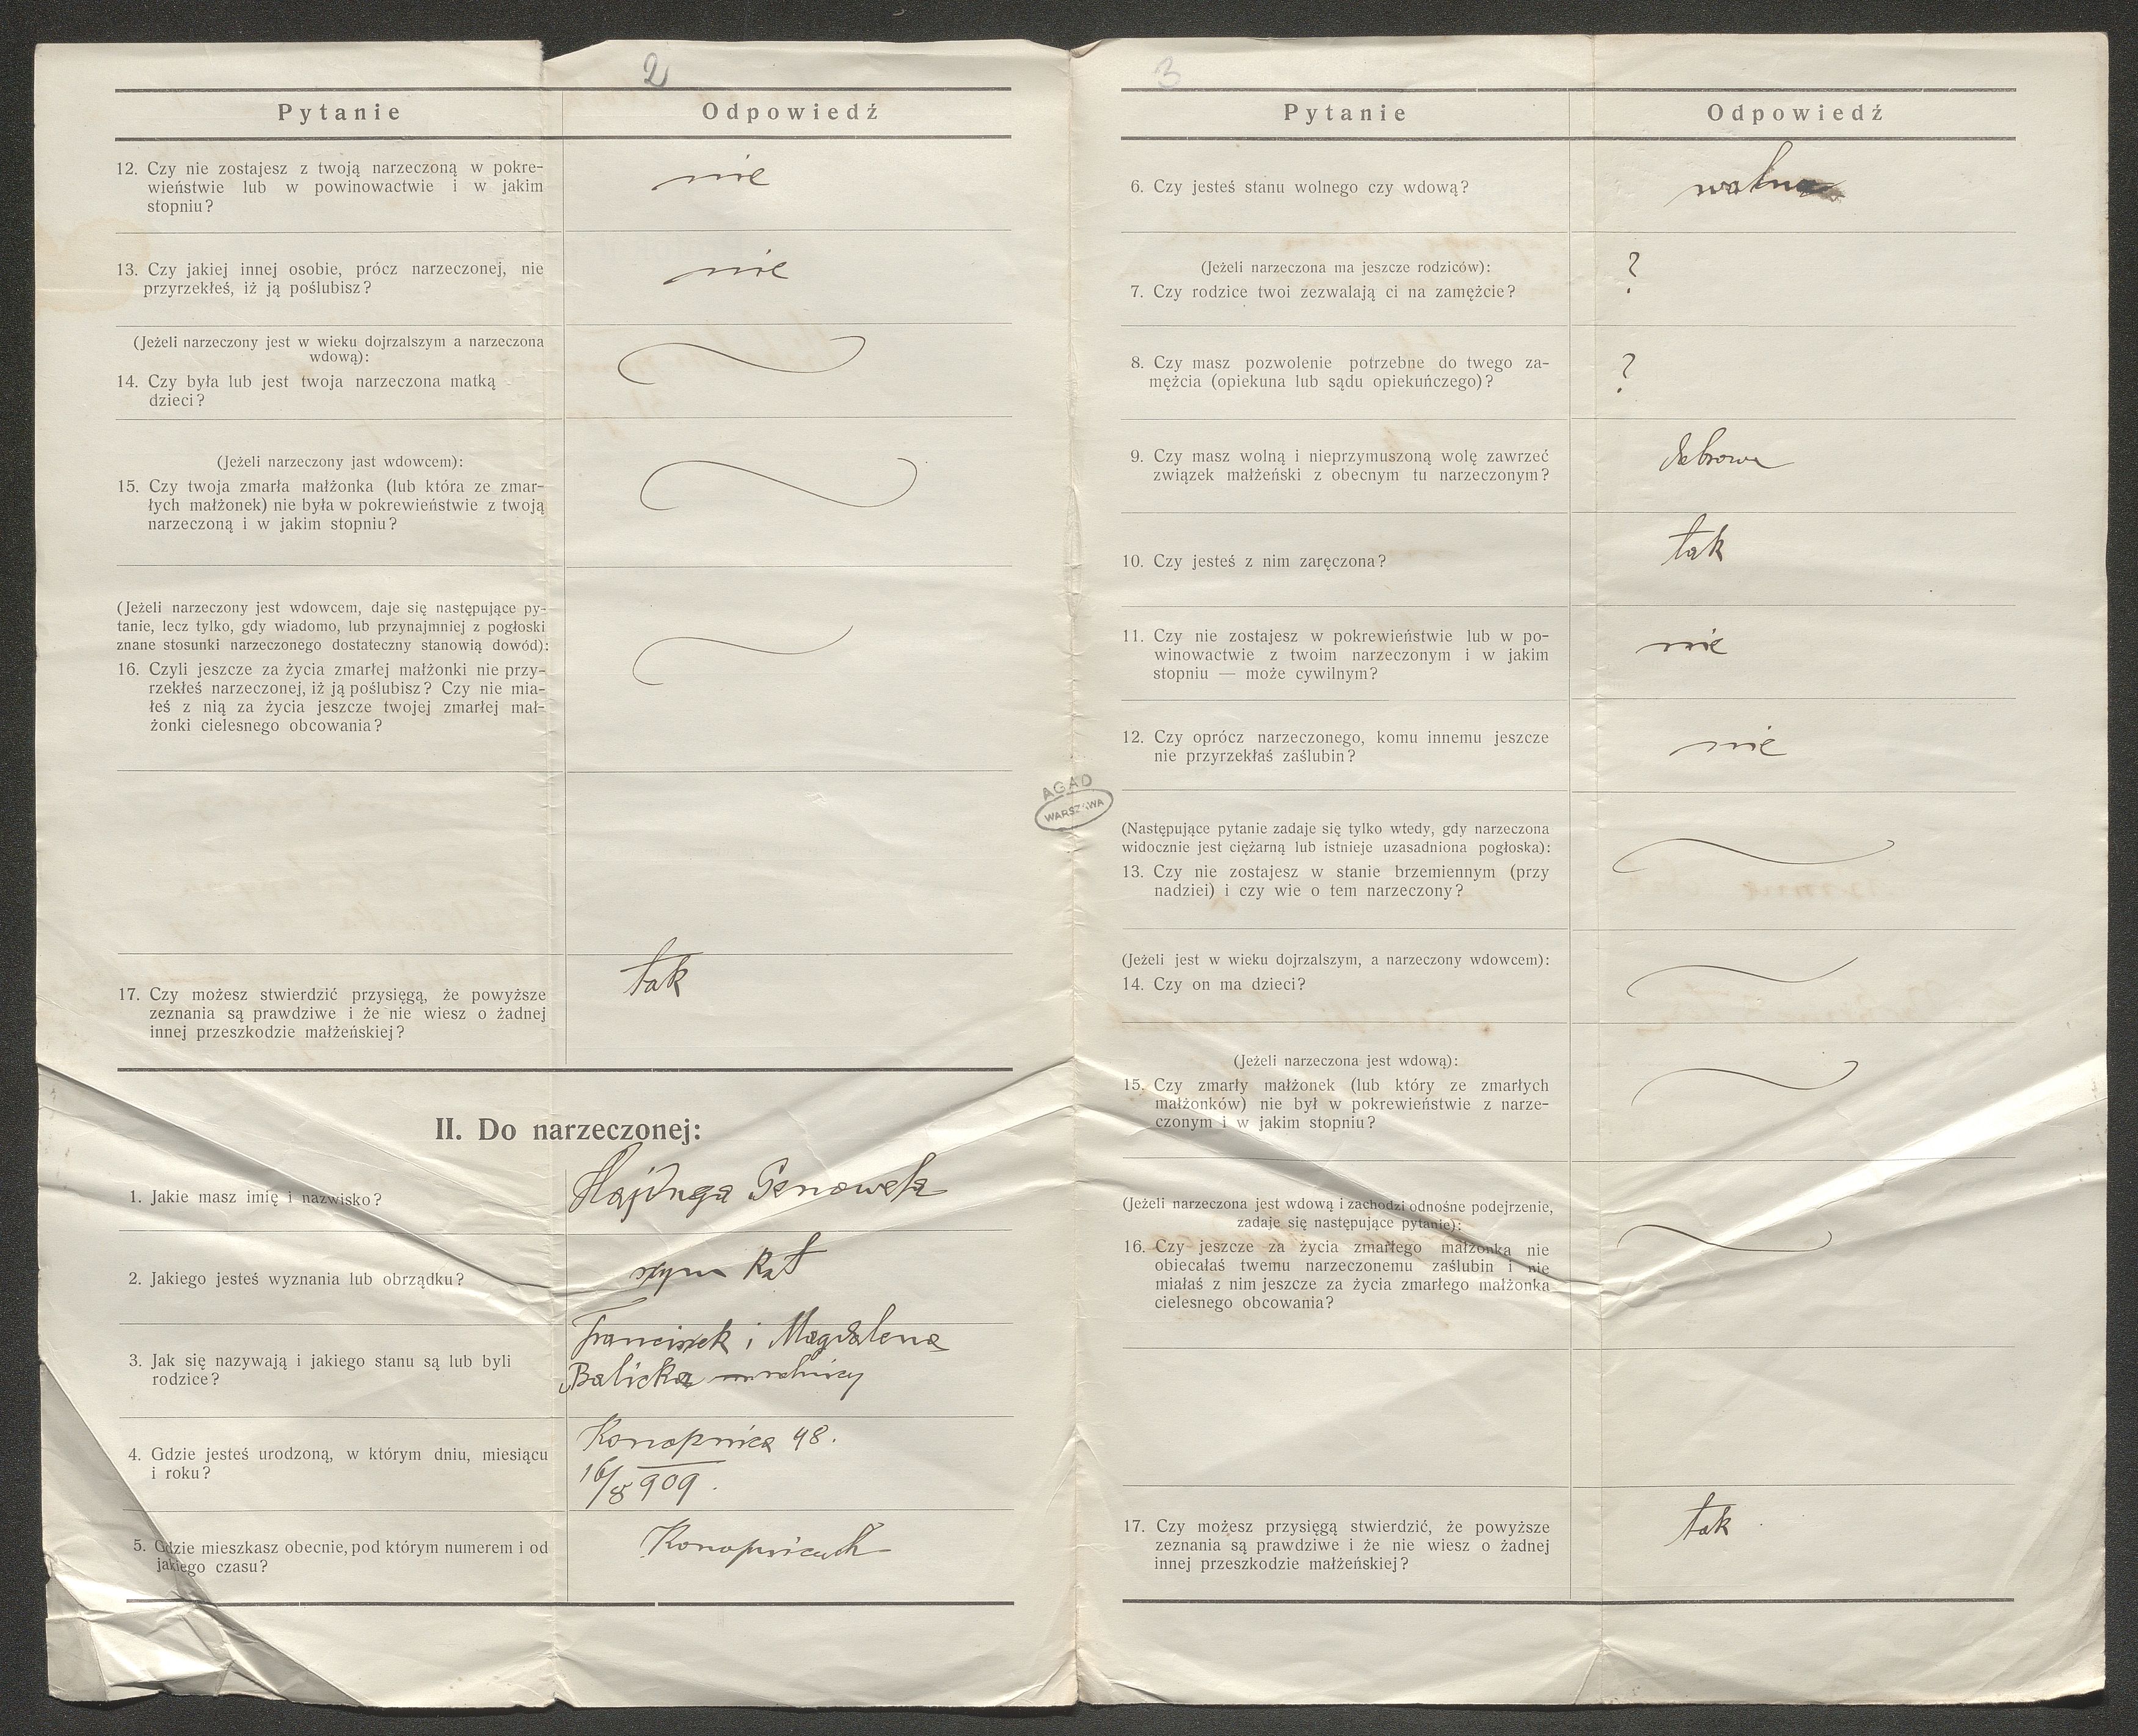 2
Pytanie Odpowiedź
12. Czy nie zostajesz z twoją narzeczoną w pokre-
wieństwie lub w powinowactwie i w jakim
stopniu?
nie
13. Czy jakiej innej osobie, prócz narzeczonej, nie
przyrzekłeś, iż ją poślubisz?
nie
(Jeżeli narzeczony jest w wieku dojrzalszym a narzeczona
wdową):
14. Czy była lub jest twoja narzeczona matką
dzieci?
(Jeżeli narzeczony jast wdowcem):
15. Czy twoja zmarła małżonka (lub która ze zmar-
łych małżonek) nie była w pokrewieństwie z twoją
narzeczoną i w jakim stopniu?
(Jeżeli narzeczony jest wdowcem, daje się następujące py-
tanie, lecz tylko, gdy wiadomo, lub przynajmniej z pogłoski
znane stosunki narzeczonego dostateczny stanowią dowód):
16. Czyli jeszcze za życia zmarłej małżonki nie przy-
rzekłeś narzeczonej, iż ją poślubisz? Czy nie mia-
łeś z nią za życia jeszcze twojej zmarłej mał-
żonki cielesnego obcowania?
17. Czy możesz stwierdzić przysięgą, że powyższe
zeznania są prawdziwe i że nie wiesz o żadnej
innej przeszkodzie małżeńskiej?
tak
II. Do narzeczonej:
1. Jakie masz imię i nazwisko?
Genowefa
2. Jakiego jesteś wyznania lub obrządku?
rzym kat
3. Jak się nazywają i jakiego stanu są lub byli
rodzice?
Franciszek i Magdalena
Balicka rolnicy
4. Gdzie jesteś urodzoną, w którym dniu, miesiącu
i roku?
Konopnica 48.
16/8 909.
5. Gdzie mieszkasz obecnie, pod którym numerem i od
jakiego czasu?
AGAD
WARSZAWA
3
Pytanie Odpowiedź
6. Czy jesteś stanu wolnego czy wdową?
wolna
(Jeżeli narzeczona ma jeszcze rodziców):
7. Czy rodzice twoi zezwalają ci na zamężcie?
?
8. Czy masz pozwolenie potrzebne do twego za-
mężcia (opiekuna lub sądu opiekuńczego)?
?
9. Czy masz wolną i nieprzymuszoną wolę zawrzeć
związek małżeński z obecnym tu narzeczonym?
10. Czy jesteś z nim zaręczona?
tak
11. Czy nie zostajesz w pokrewieństwie lub w po-
winowactwie z twoim narzeczonym i w jakim
stopniu — może cywilnym?
nie
12. Czy oprócz narzeczonego, komu innemu jeszcze
nie przyrzekłaś zaślubin?
nie
(Następujące pytanie zadaje się tylko wtedy, gdy narzeczona
widocznie jest ciężarną lub istnieje uzasadniona pogłoska):
13. Czy nie zostajesz w stanie brzemiennym (przy
nadziei) i czy wie o tem narzeczony?
(Jeżeli jest w wieku dojrzalszym, a narzeczony wdowcem):
14. Czy on ma dzieci?
(Jeżeli narzeczona jest wdową):
15. Czy zmarły małżonek (lub który ze zmarłych
małżonków) nie był w pokrewieństwie z narze-
czonym i w jakim stopniu?
(Jeżeli narzeczona jest wdową i zachodzi odnośne podejrzenie,
zadaje się następujące pytanie):
16. Czy jeszcze za życia zmarłego małżonka nie
obiecałaś twemu narzeczonemu zaślubin i nie
miałaś z nim jeszcze za życia zmarłego małżonka
cielesnego obcowania?
17. Czy możesz przysięgą stwierdzić, że powyższe
zeznania są prawdziwe i że nie wiesz o żadnej
innej przeszkodzie małżeńskiej?
tak